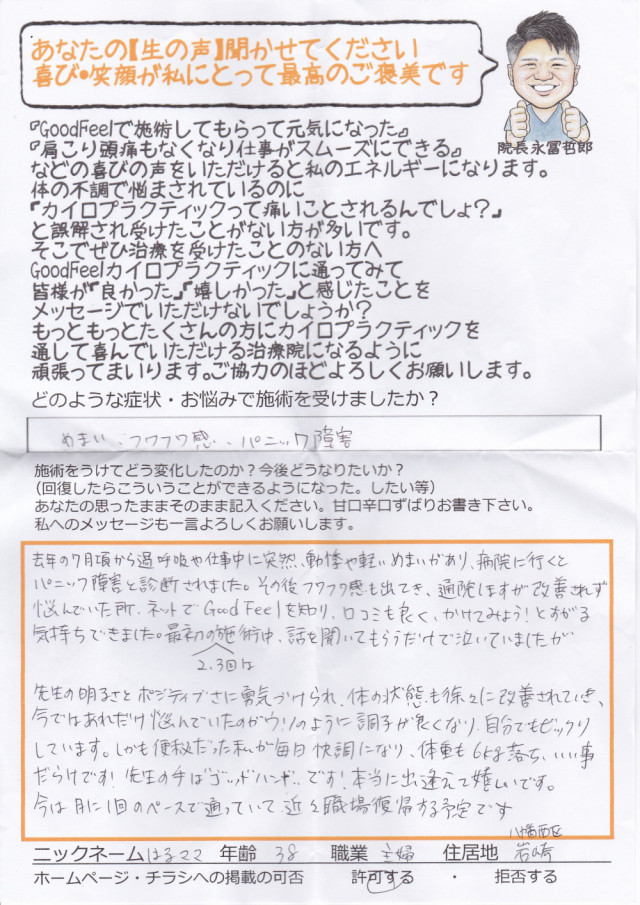 あなたの【生の声】聞かせてください
喜び・笑顔が私にとって最高のご褒美です
院長永冨哲郎
『GoodFeelで施術してもらって元気になった』
『肩こり頭痛もなくなり仕事がスムーズにできる』
などの喜びの声をいただけると私のエネルギーになります。
体の不調で悩まされているのに
「カイロプラクティックって痛いことされるんでしょ?」
と誤解され受けたことがない方が多いです。
そこでぜひ治療を受けたことのない方へ
GoodFeelカイロプラクティックに通ってみて
皆様が「良かった」「嬉しかった」と感じたことを
メッセージでいただけないでしょうか?
もっともっとたくさんの方にカイロプラクティックを
通して喜んでいただける治療院になるように
頑張ってまいります。ご協力のほどよろしくお願いします。
どのような症状・お悩みで施術を受けましたか?
めまい、フワフワ感、パニック障害
施術をうけてどう変化したのか?今後どうなりたいか?
(回復したらこういうことができるようになった。したい等)
あなたの思ったままそのまま記入ください。甘口辛口ずばりお書き下さい。
私へのメッセージも一言よろしくお願いします。
去年の7月頃から過呼吸や仕事中に突然、動悸や軽いめまいがあり、病院に行くと
パニック障害と診断されました。その後フワフワ感も出てき、通院しますが改善されず
悩んでいた所、ネットでGood Feelを知り、口コミも良く、かけてみよう!とすがる
気持ちできました。最初の施術中、話を聞いてもらうだけで泣いていましたが
2、3回は
先生の明るさとポジティブさに勇気づけられ、体の状態も徐々に改善されていき、
今ではあれだけ悩んでいたのがウソのように調子が良くなり、自分でもビックリ
しています。しかも便秘だった私が毎日快調になり、体重も6kg落ち、いい事
だらけです!先生の手は"ゴッドハンド"です!本当に出逢えて嬉しいです。
今は月に1回のペースで通っていて、近々職場復帰する予定です
八幡西区
ニックネーム はるママ 年齢 38 職業 主婦 住居地 岩崎
ホームページ・チラシへの掲載の可否 許可する ・ 拒否する